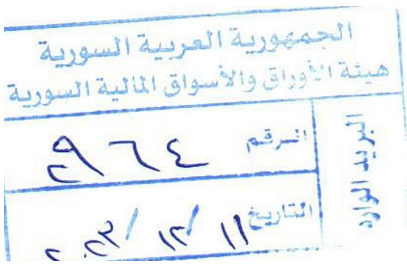 الجمهورية العربية السورية
هيئة الأوراق والأسواق المالية السورية
البريد الوارد
الرقم ٩٦٤
التاريخ ١١/ ١٢/ ٢٠٢٣